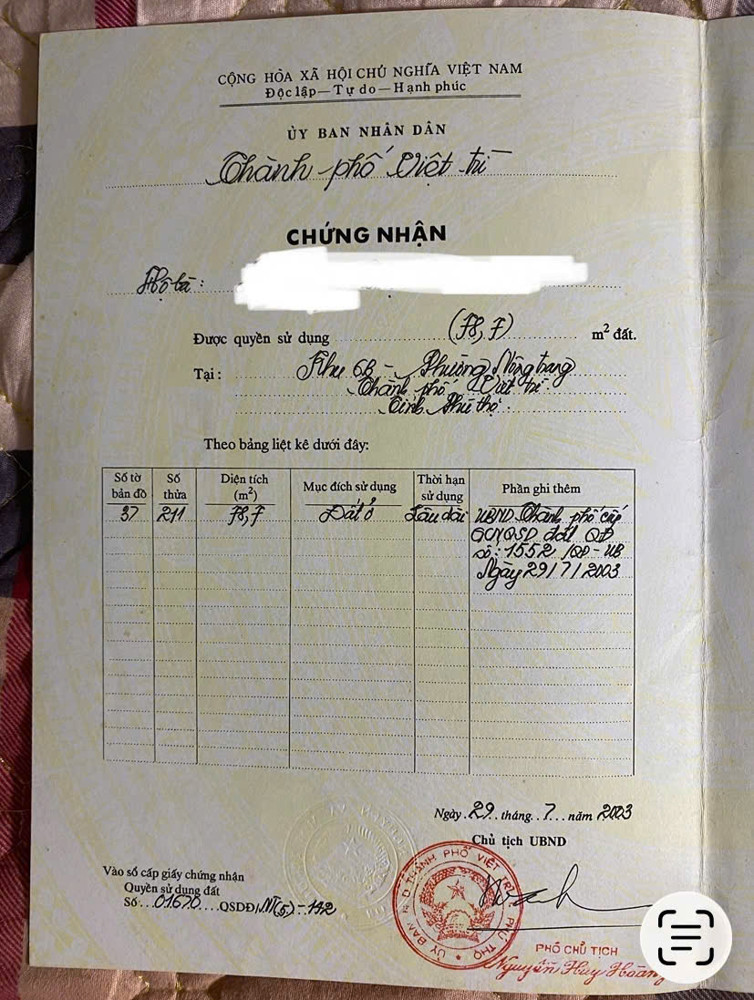 CỘNG HÒA XÃ HỘI CHỦ NGHĨA VIỆT NAM
Độc lập — Tự do — Hạnh phúc
ỦY BAN NHÂN DÂN
Thành phố Việt trì
CHỨNG NHẬN
Hộ bà :
Được quyền sử dụng (78,7) m² đất.
Tại : Khu 6B - Phường Nông trang
Thành phố Việt trì
Tỉnh Phú thọ.
Theo bảng liệt kê dưới đây:
Số tờ bản đồ | Số thửa | Diện tích (m²) | Mục đích sử dụng | Thời hạn sử dụng | Phần ghi thêm
37 | 211 | 78,7 | Đất ở | Lâu dài | UBND Thành phố cấp
GCNQSD đất QĐ
số : 1552 /QĐ - UB
Ngày 29/7/2003
Ngày 29 tháng 7 năm 2003
Chủ tịch UBND
Vào sổ cấp giấy chứng nhận
Quyền sử dụng đất
Số 01670 QSDĐ/NT(5)-142
ỦY BAN N.D THÀNH PHỐ VIỆT TRÌ PHÚ THỌ
PHÓ CHỦ TỊCH
Nguyễn Huy Hoàng